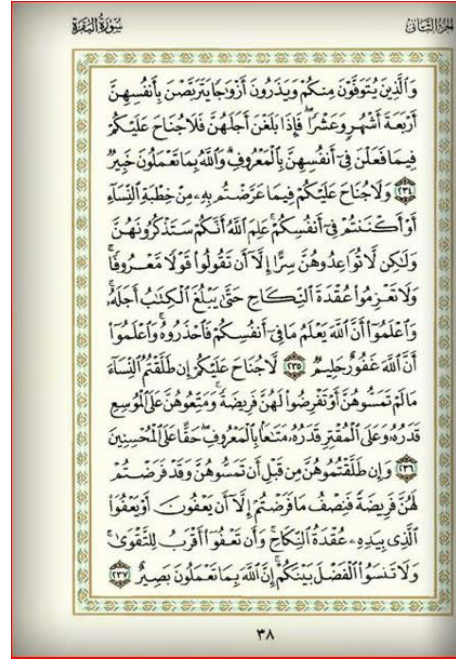 سُورَةُ الْبَقَرَةِ
الجزء الثاني
وَالَّذِينَ يُتَوَفَّوْنَ مِنكُمْ وَيَذَرُونَ أَزْوَاجًا يَتَرَبَّصْنَ بِأَنفُسِهِنَّ
أَرْبَعَةَ أَشْهُرٍ وَعَشْرًا ۖ فَإِذَا بَلَغْنَ أَجَلَهُنَّ فَلَا جُنَاحَ عَلَيْكُمْ
فِيمَا فَعَلْنَ فِي أَنفُسِهِنَّ بِالْمَعْرُوفِ ۗ وَاللَّهُ بِمَا تَعْمَلُونَ خَبِيرٌ
٢٣٤ وَلَا جُنَاحَ عَلَيْكُمْ فِيمَا عَرَّضْتُم بِهِ مِنْ خِطْبَةِ النِّسَاءِ
أَوْ أَكْنَنتُمْ فِي أَنفُسِكُمْ ۚ عَلِمَ اللَّهُ أَنَّكُمْ سَتَذْكُرُونَهُنَّ
وَلَٰكِن لَّا تُوَاعِدُوهُنَّ سِرًّا إِلَّا أَن تَقُولُوا قَوْلًا مَّعْرُوفًا ۚ
وَلَا تَعْزِمُوا عُقْدَةَ النِّكَاحِ حَتَّىٰ يَبْلُغَ الْكِتَابُ أَجَلَهُ ۚ
وَاعْلَمُوا أَنَّ اللَّهَ يَعْلَمُ مَا فِي أَنفُسِكُمْ فَاحْذَرُوهُ ۚ وَاعْلَمُوا
أَنَّ اللَّهَ غَفُورٌ حَلِيمٌ ٢٣٥ لَّا جُنَاحَ عَلَيْكُمْ إِن طَلَّقْتُمُ النِّسَاءَ
مَا لَمْ تَمَسُّوهُنَّ أَوْ تَفْرِضُوا لَهُنَّ فَرِيضَةً ۚ وَمَتِّعُوهُنَّ عَلَى الْمُوسِعِ
قَدَرُهُ وَعَلَى الْمُقْتِرِ قَدَرُهُ مَتَاعًا بِالْمَعْرُوفِ ۖ حَقًّا عَلَى الْمُحْسِنِينَ
٢٣٦ وَإِن طَلَّقْتُمُوهُنَّ مِن قَبْلِ أَن تَمَسُّوهُنَّ وَقَدْ فَرَضْتُمْ
لَهُنَّ فَرِيضَةً فَنِصْفُ مَا فَرَضْتُمْ إِلَّا أَن يَعْفُونَ أَوْ يَعْفُوَا
الَّذِي بِيَدِهِ عُقْدَةُ النِّكَاحِ ۚ وَأَن تَعْفُوا أَقْرَبُ لِلتَّقْوَىٰ ۚ
وَلَا تَنسَوُا الْفَضْلَ بَيْنَكُمْ ۚ إِنَّ اللَّهَ بِمَا تَعْمَلُونَ بَصِيرٌ ٢٣٧
٣٨